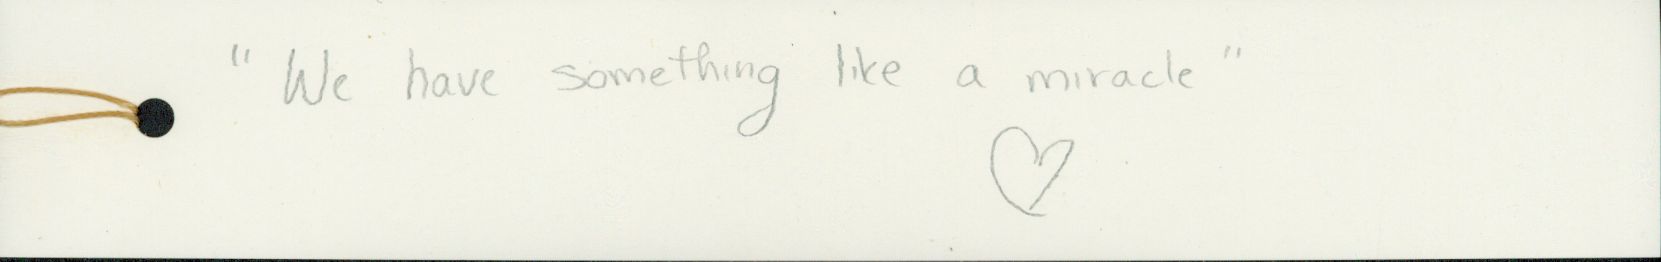 "We have something like a miracle"